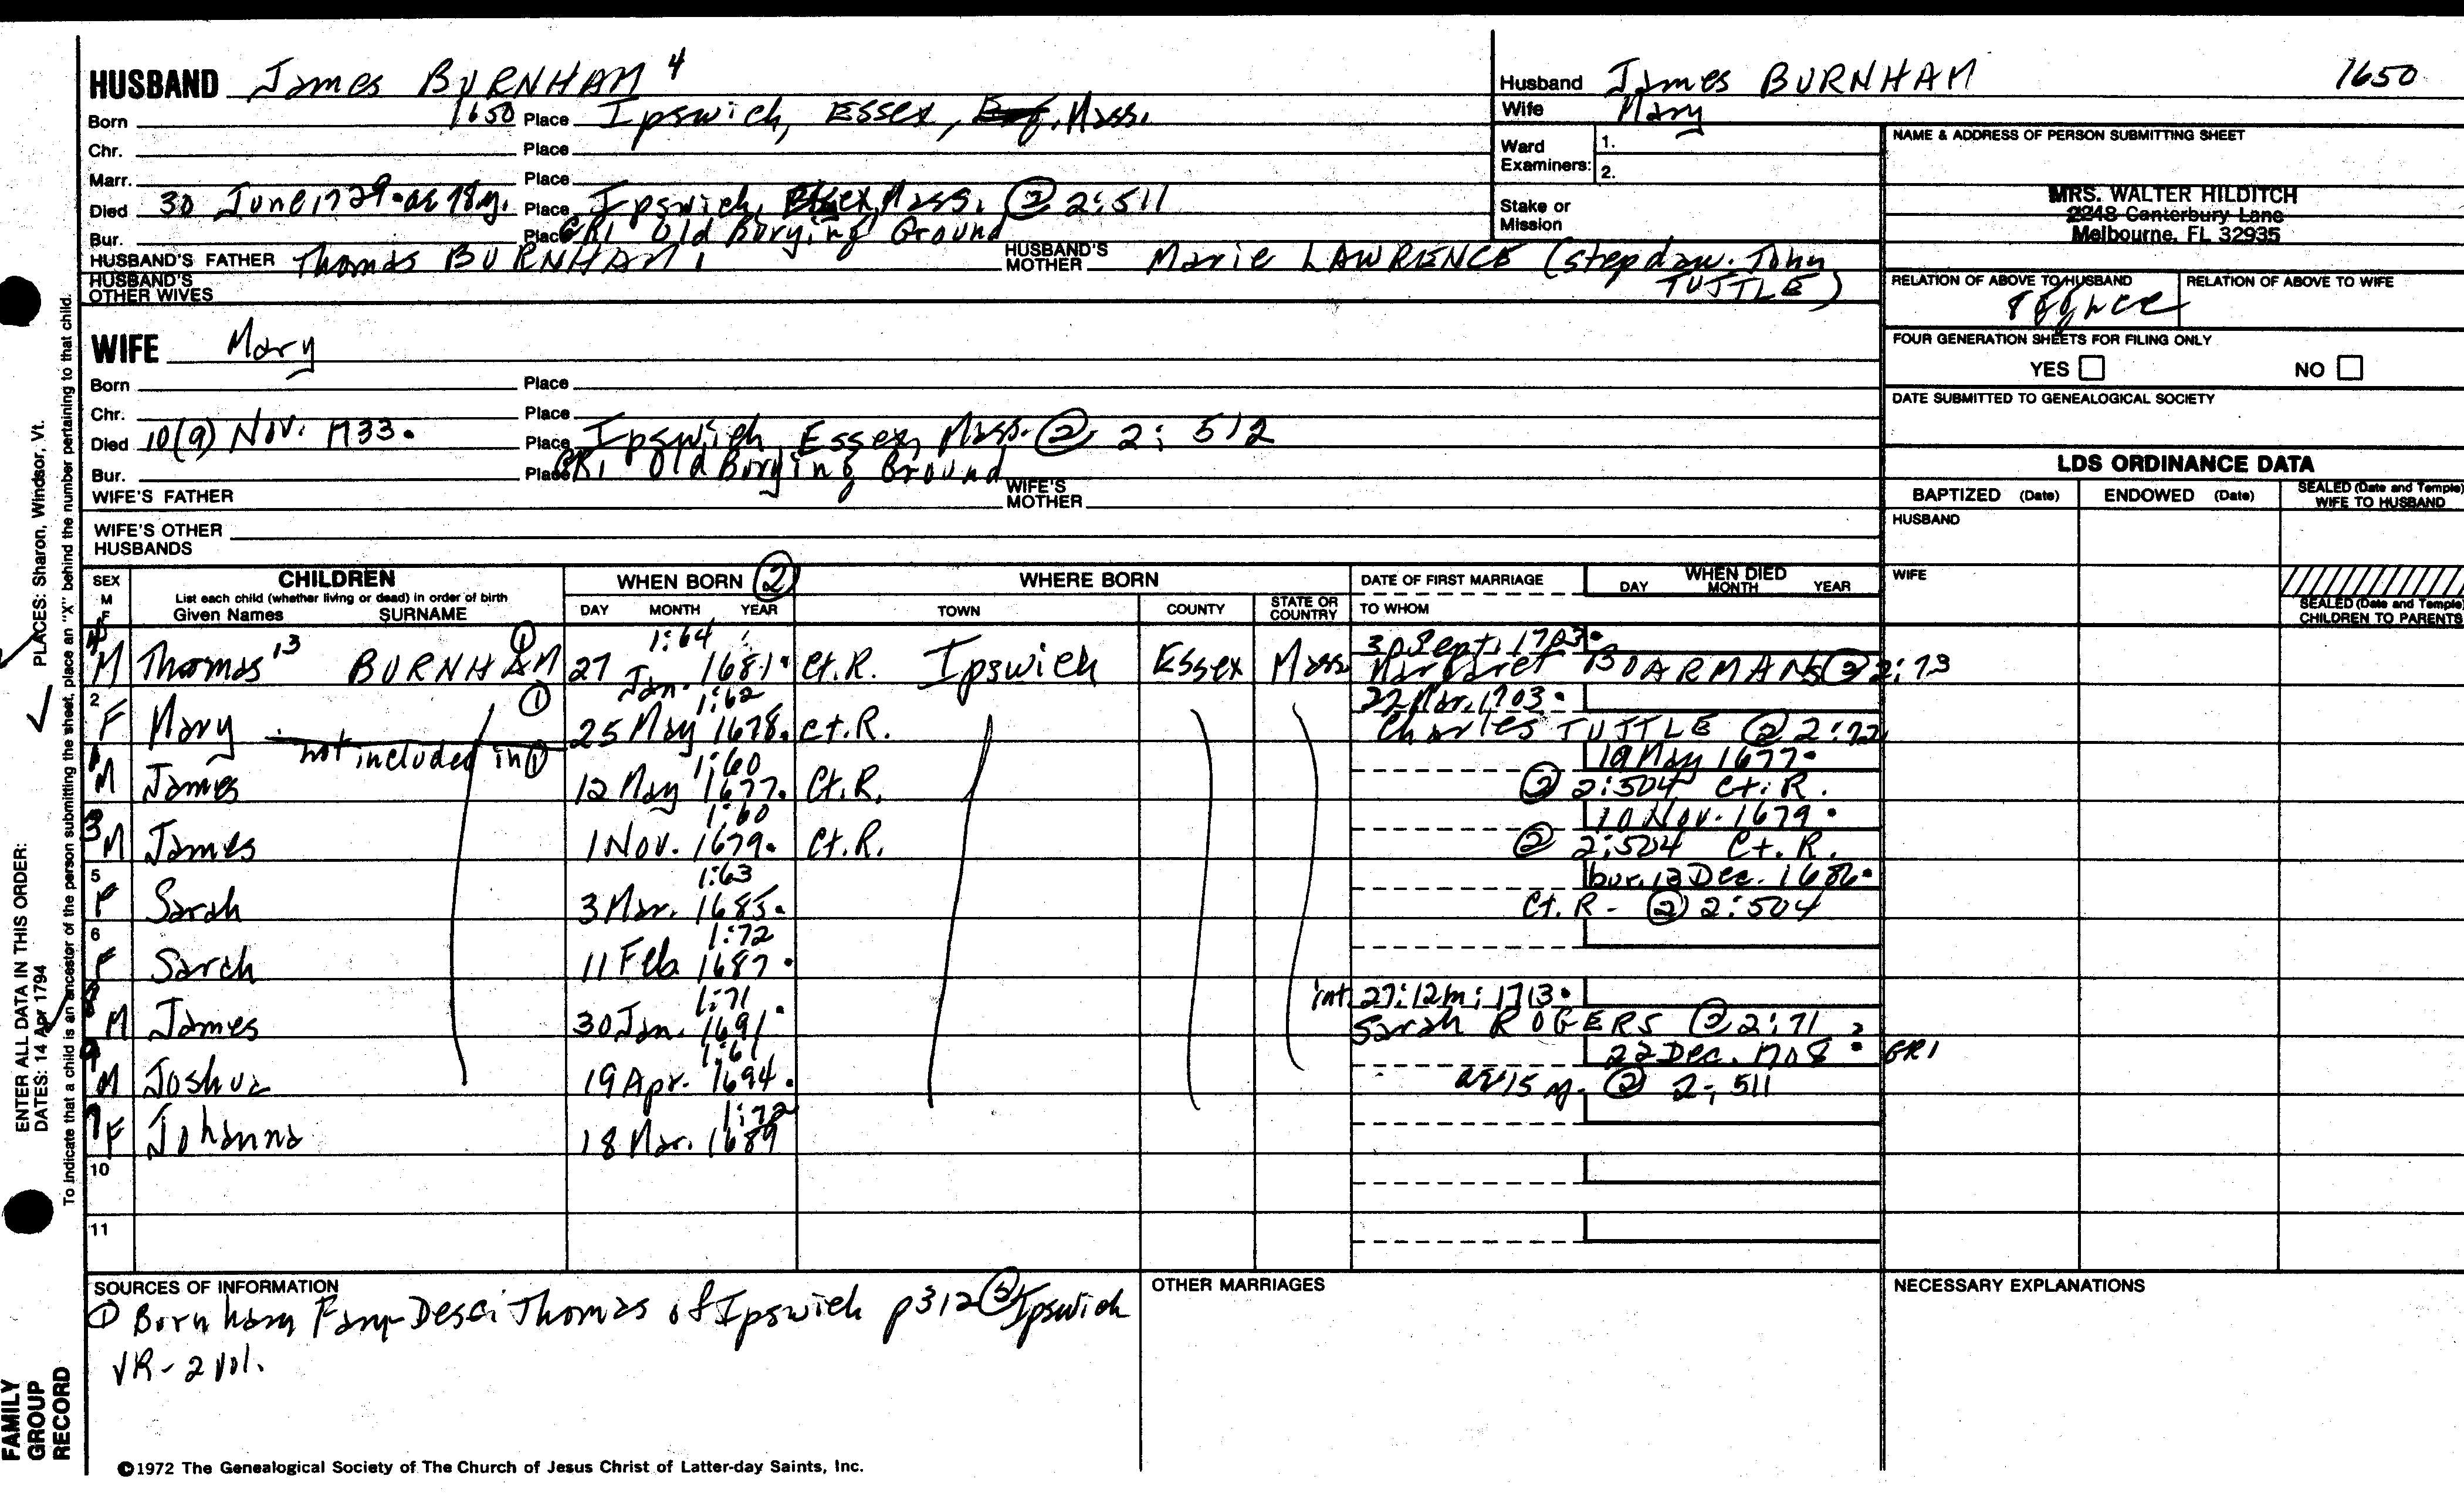 HUSBAND James BURNHAM 4
Born 1650 Place Ipswich, Essex, Mass.
Chr. Place
Marr. Place
Died 30 June 1729. ae 78 y. Place Ipswich, Essex, Mass. ② 2:511
Bur. Place GR1 Old Burying Ground
HUSBAND'S FATHER Thomas BURNHAM HUSBAND'S MOTHER Marie LAWRENCE (stepdau. John TUTTLE)
HUSBAND'S OTHER WIVES
WIFE Mary
Born Place
Chr. Place
Died 10(9) Nov. 1733. Place Ipswich, Essex, Mass. ② 2:512
Bur. Place GR1 Old Burying Ground
WIFE'S FATHER WIFE'S MOTHER
WIFE'S OTHER HUSBANDS
Husband James BURNHAM 1650
Wife Mary
Ward Examiners: 1.
2.
Stake or Mission
NAME & ADDRESS OF PERSON SUBMITTING SHEET
MRS. WALTER HILDITCH
2248 Canterbury Lane
Melbourne, FL 32935
RELATION OF ABOVE TO HUSBAND RELATION OF ABOVE TO WIFE
FOUR GENERATION SHEETS FOR FILING ONLY
YES NO
DATE SUBMITTED TO GENEALOGICAL SOCIETY
LDS ORDINANCE DATA
BAPTIZED (Date) ENDOWED (Date) SEALED (Date and Temple) WIFE TO HUSBAND
HUSBAND
WIFE
SEALED (Date and Temple) CHILDREN TO PARENTS
SEX M F CHILDREN WHEN BORN ② WHERE BORN DATE OF FIRST MARRIAGE WHEN DIED
List each child (whether living or dead) in order of birth
Given Names SURNAME DAY MONTH YEAR TOWN COUNTY STATE OR COUNTRY TO WHOM DAY MONTH YEAR
1:64 30 Sept. 1703.
4 M Thomas 13 BURNHAM ① 27 Jan. 1681. Ct.R. Ipswich Essex Mass Margaret BOARMAN ② 2:73
1:62 22 Mar. 1703.
2 F Mary ① 25 May 1678. Ct.R. Charles TUTTLE ② 2:72
not included in ①
1:60 19 May 1677.
1 M James 12 May 1677. Ct.R. ② 2:504 Ct.R.
1:60 10 Nov. 1679.
3 M James 1 Nov. 1679. Ct.R. ② 2:504 Ct.R.
1:63 bur. 13 Dec. 1686.
5 F Sarah 3 Mar. 1685. Ct.R. - ② 2:504
1:72
6 F Sarah 11 Feb. 1687.
1:71 int. 27:12m:1713.
8 M James 30 Jan. 1691. Sarah ROGERS ② 2:71
1:61 22 Dec. 1708. GR1
9 M Joshua 19 Apr. 1694. ae 15 y. ② 2:511
1:72
7 F Johanna 18 Mar. 1689
10
11
SOURCES OF INFORMATION
① Burnham Fam-Desc. Thomas of Ipswich p312 ② Ipswich
VR-2 vol.
OTHER MARRIAGES
NECESSARY EXPLANATIONS
©1972 The Genealogical Society of The Church of Jesus Christ of Latter-day Saints, Inc.
ENTER ALL DATA IN THIS ORDER:
DATES: 14 Apr 1794 PLACES: Sharon, Windsor, Vt.
To indicate that a child is an ancestor of the person submitting the sheet, place an "X" behind the number pertaining to that child.
FAMILY GROUP RECORD